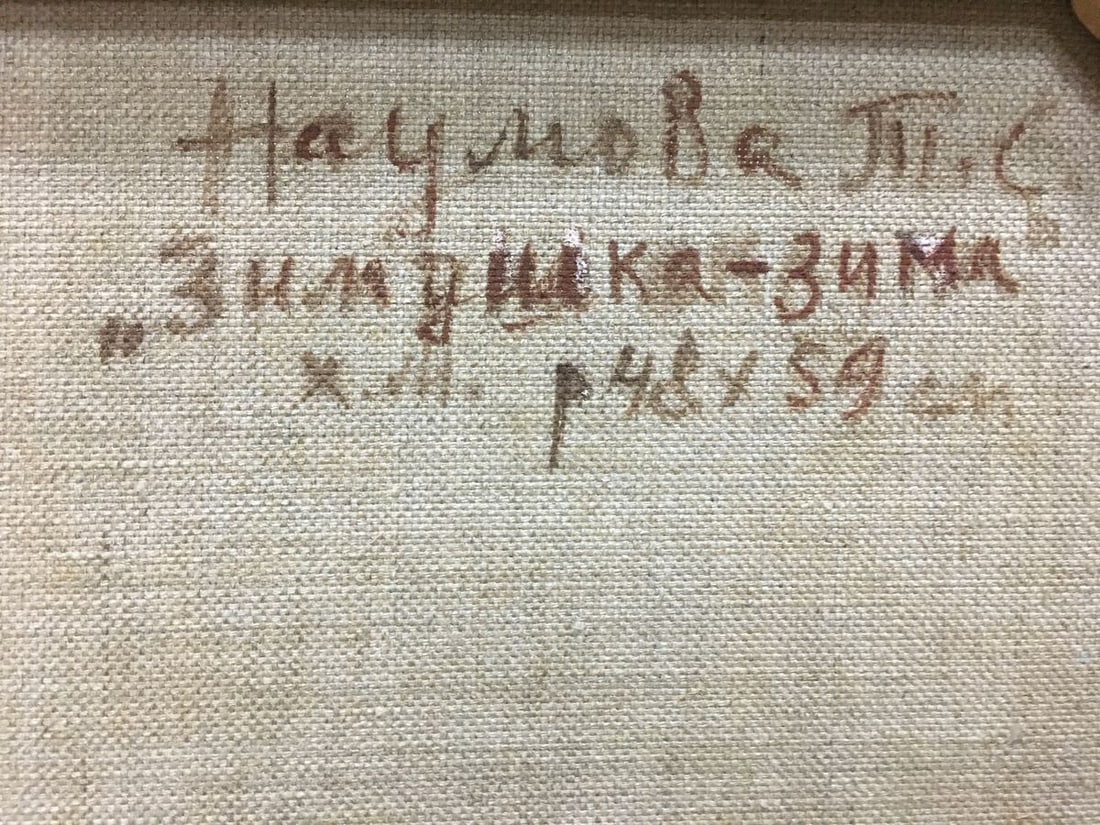 Наумова Т. С
„Зимушка-зима
х.м. р 48 х 59 см.